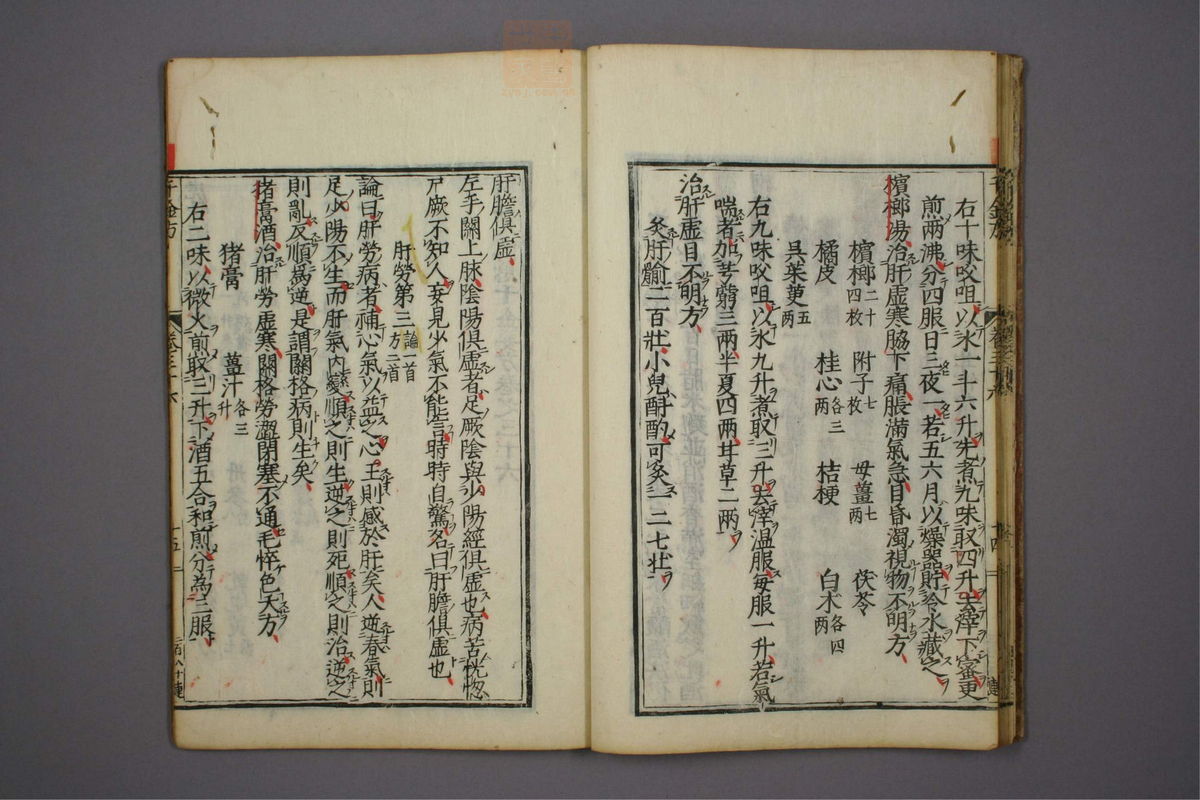 右十味㕮咀以水一斗六升先煮九味取四升去滓下蜜更
煎兩沸分四服日三夜一若五六月以燥器貯冷水藏之
檳榔湯治肝虛寒脇下痛脹滿氣急目昏濁視物不明方
檳榔二十四枚 附子七枚 母薑七兩 茯苓
橘皮 桂心各三兩 桔梗 白朮各四兩
吳茱萸五兩
右九味㕮咀以水九升煮取三升去滓溫服每服一升若氣
喘者加芎藭三兩半夏四兩甘草二兩
治肝虛目不明方
灸肝腧二百壯小兒酙酌可灸一二七壯
肝膽俱虛
左手關上脉陰陽俱虛者足厥陰與少陽經俱虛也病苦恍惚
尸厥不知人妄見少氣不能言時時自驚名曰肝膽俱虛也
肝勞第三論一首方二首
論曰肝勞病者補心氣以益之心王則感於肝矣人逆春氣則
足少陽不生而肝氣內變順之則生逆之則死順之則治逆之
則亂反順爲逆是謂關格病則生矣
猪膏酒治肝勞虛寒關格勞澀閉塞不通毛悴色夭方
猪膏 薑汁各三升
右二味以微火煎取三升下酒五合和煎分為三服
千金方
十五